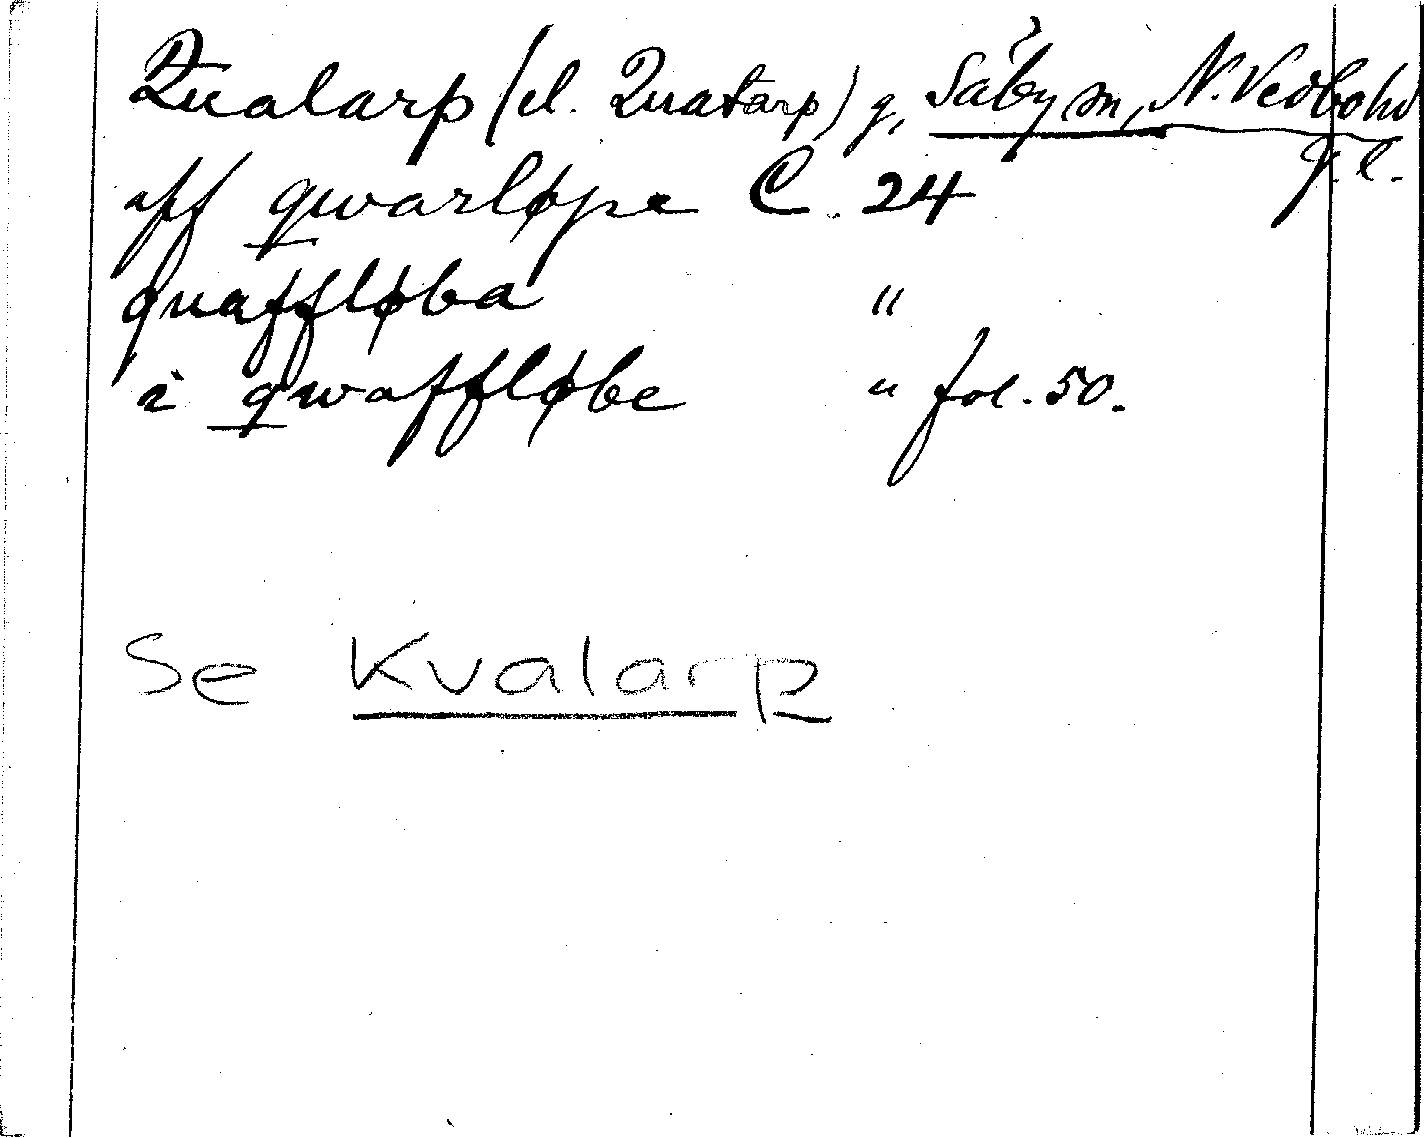 Qualarp (el. Quatarp) g, Säby sn, N. Vedbohd
J. L.
aff qwarløpe C. 24
quaffløba "
i qwaffløbe " fol. 50.
Se Kvalarp